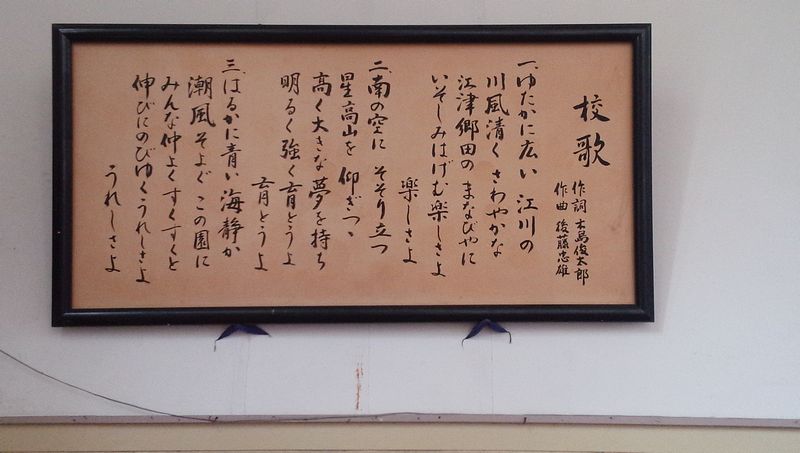 校歌
作詞 木島俊太郎
作曲 後藤忠雄
一、ゆたかに広い 江川の
川風清く さわやかな
江津郷田の まなびやに
いそしみはげむ楽しさよ
楽しさよ
二、南の空に そそり立つ
星高山を 仰ぎつゝ
高く大きな夢を持ち
明るく強く育とうよ
育とうよ
三、はるかに青い 海静か
潮風そよぐ この園に
みんな仲よくすくすくと
伸びにのびゆくうれしさよ
うれしさよ